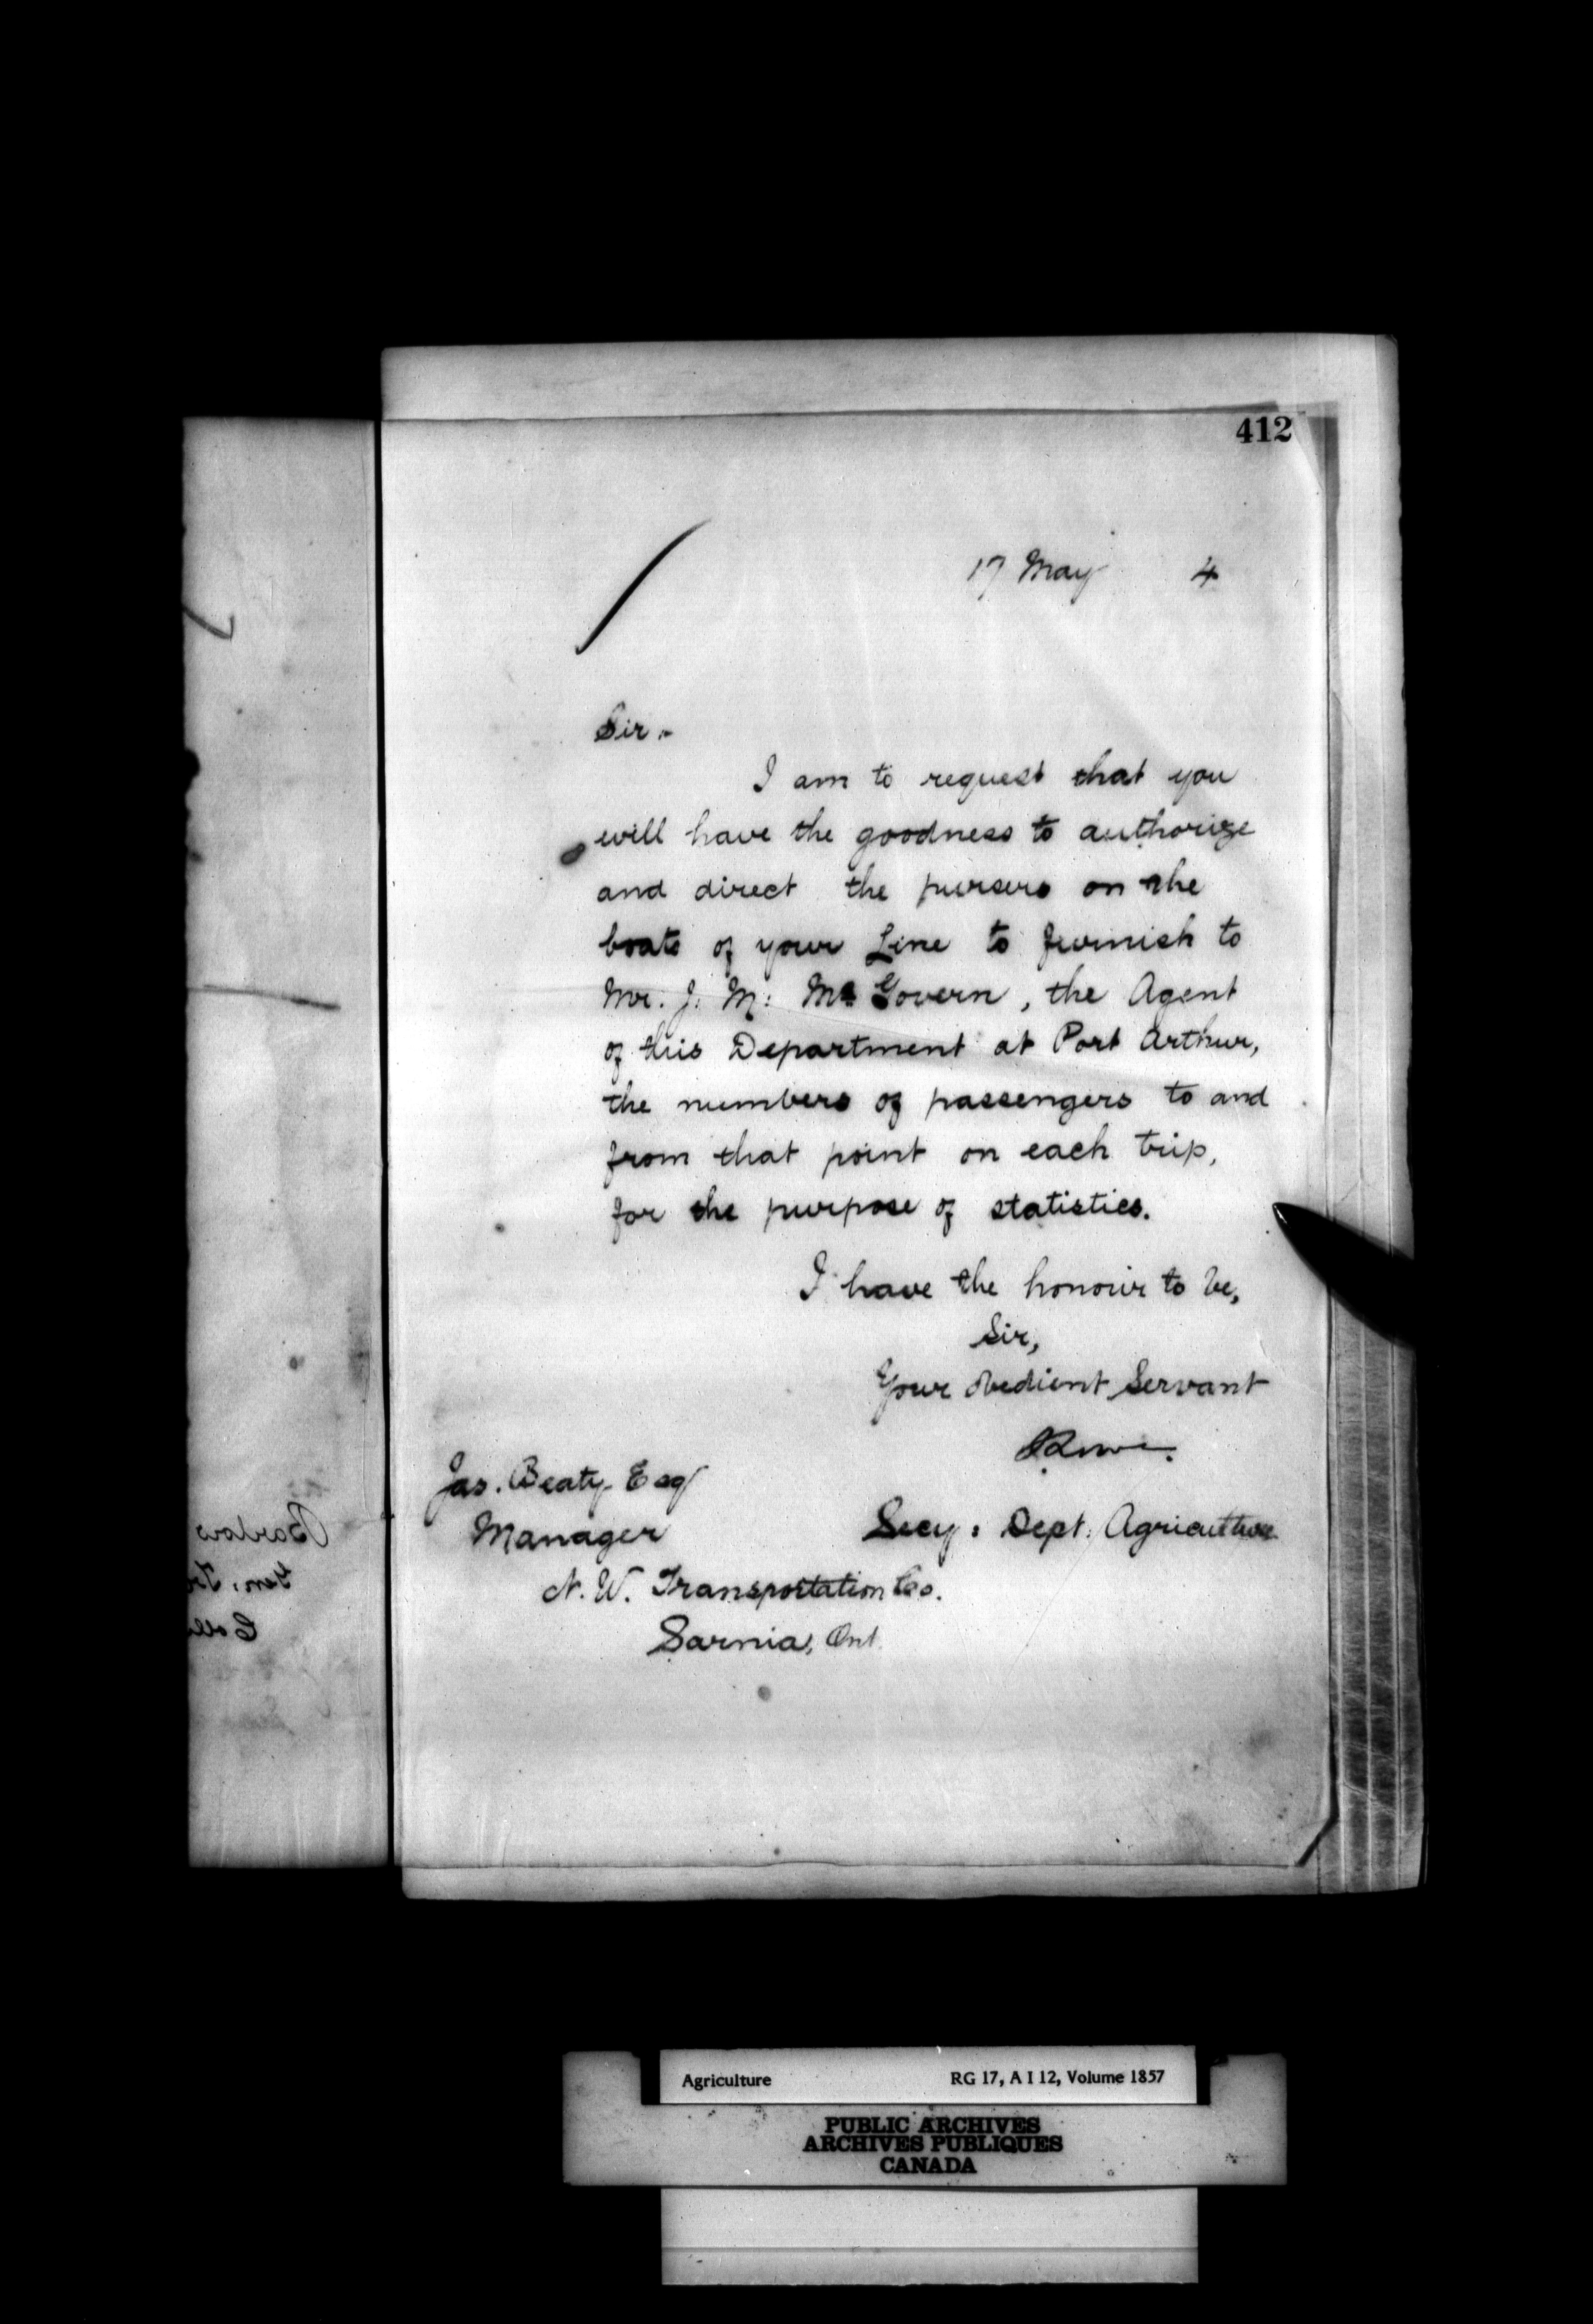 412
17 May 4
Sir.
I am to request that you
will have the goodness to authorize
and direct the pursers on the
boats of your Line to furnish to
Mr. J. M. McGovern, the Agent
of this Department at Port Arthur,
the numbers of passengers to and
from that point on each trip,
for the purpose of statistics.
I have the honour to be,
Sir,
Your obedient Servant
Jas. Beaty Esq
Manager
Secy: Dept. Agriculture
N. W. Transportation Co.
Sarnia, Ont.
Agriculture RG 17, A I 12, Volume 1857
PUBLIC ARCHIVES
ARCHIVES PUBLIQUES
CANADA